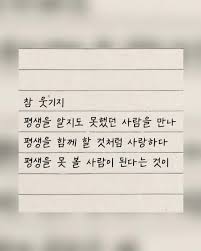 참 웃기지
평생을 알지도 못했던 사람을 만나
평생을 함께 할 것처럼 사랑하다
평생을 못 볼 사람이 된다는 것이